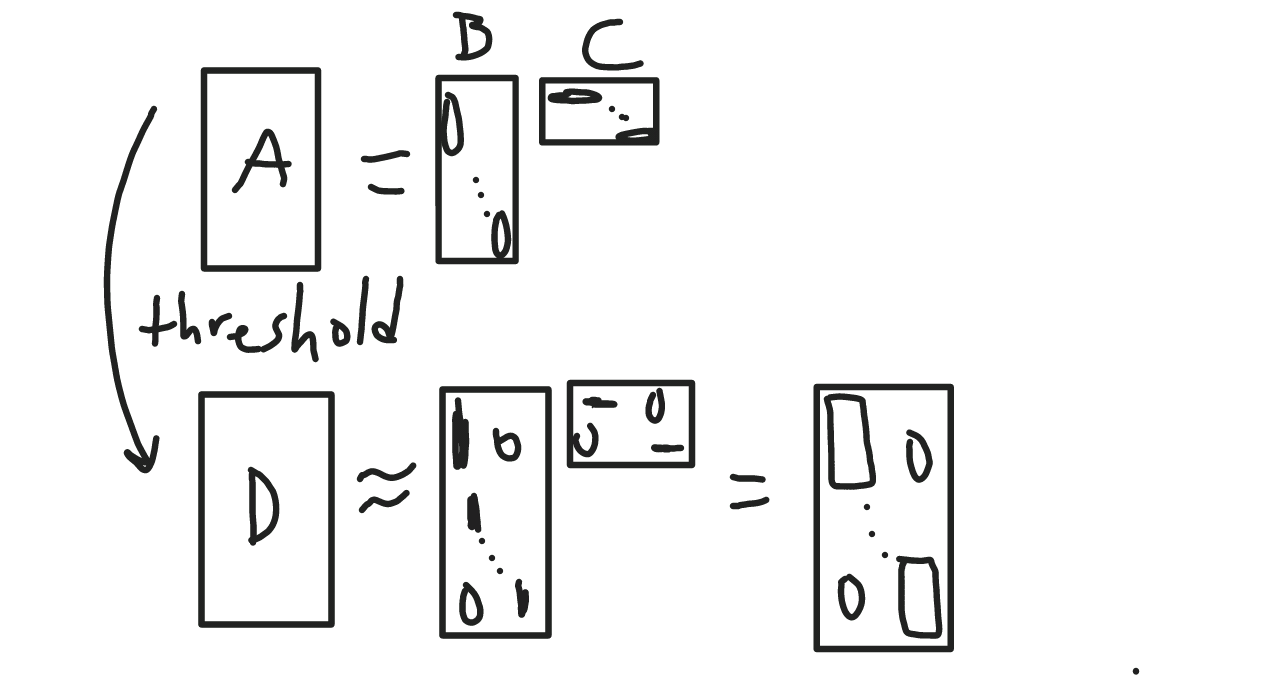 B C
A = 0 0
threshold
D ≈ 0 0 0 0 = 0 0